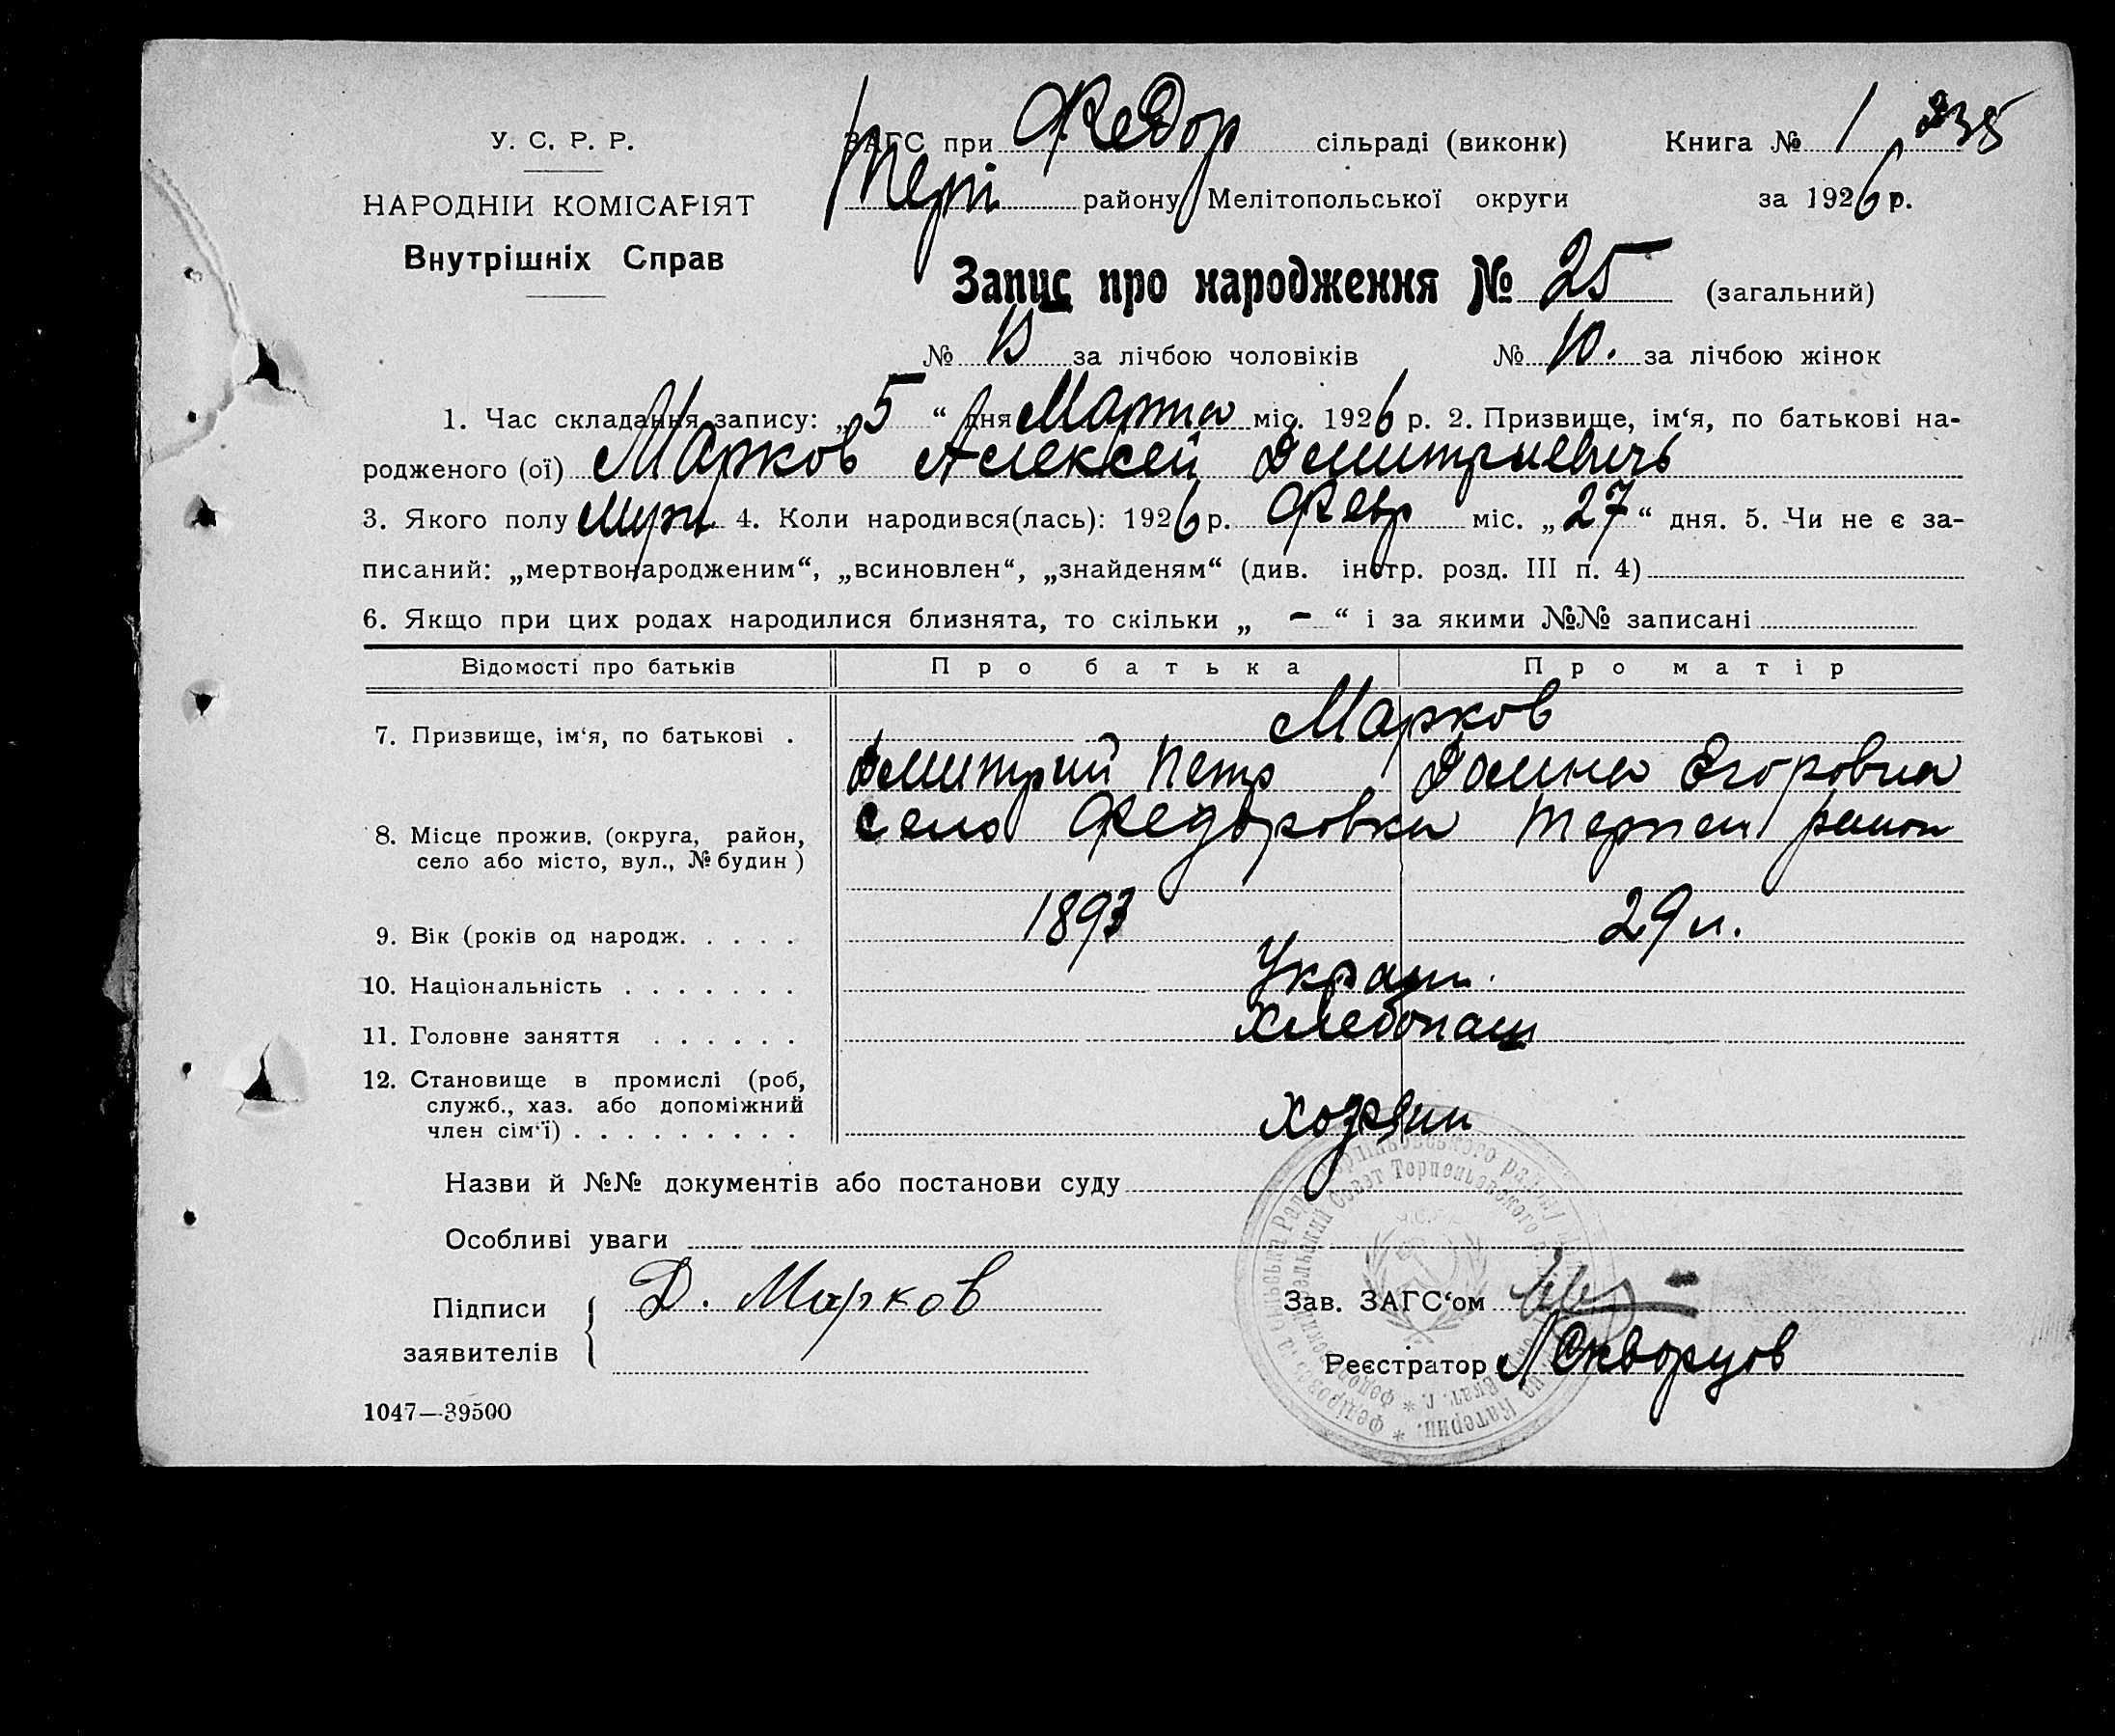 У. С. Р. Р.
НАРОДНІЙ КОМІСАРІЯТ
Внутрішніх Справ
ЗАГС при Федор сільраді (виконк) Книга № 1 235
Терп району Мелітопольської округи за 1926 р.
Запис про народження № 25 (загальний)
№ за лічбою чоловіків № 10. за лічбою жінок
1. Час складання запису: „5“ дня Марта міс. 1926 р. 2. Призвище, ім‘я, по батькові на-
родженого (ої) Марков Алексей Дмитриевичь
3. Якого полу Муж. 4. Коли народився(лась): 1926 р. Февр міс. „27“ дня. 5. Чи не є за-
писаний: „мертвонародженим“, „всиновлен“, „знайденям“ (див. інстр. розд. III п. 4)
6. Якщо при цих родах народилися близнята, то скільки „ - “ і за якими №№ записані
Відомості про батьків Про батька Про матір
7. Призвище, ім‘я, по батькові . Марков
Дмитрий Петр Домна Егоровна
8. Місце прожив. (округа, район, село або місто, вул., № будин) село Федоровка Терпен район
9. Вік (років од народж. . . . . 1893 29 л.
10. Національність . . . . . . . Украин.
11. Головне заняття . . . . . . Хлебопаш
12. Становище в промислі (роб,
служб., хаз. або допоміжний
член сім‘ї) . . . . . . . . . Хозяин
Назви й №№ документів або постанови суду
Особливі уваги
Підписи
заявителів
Д. Марков
Зав. ЗАГС‘ом
Реєстратор Скворцов
1047—39500